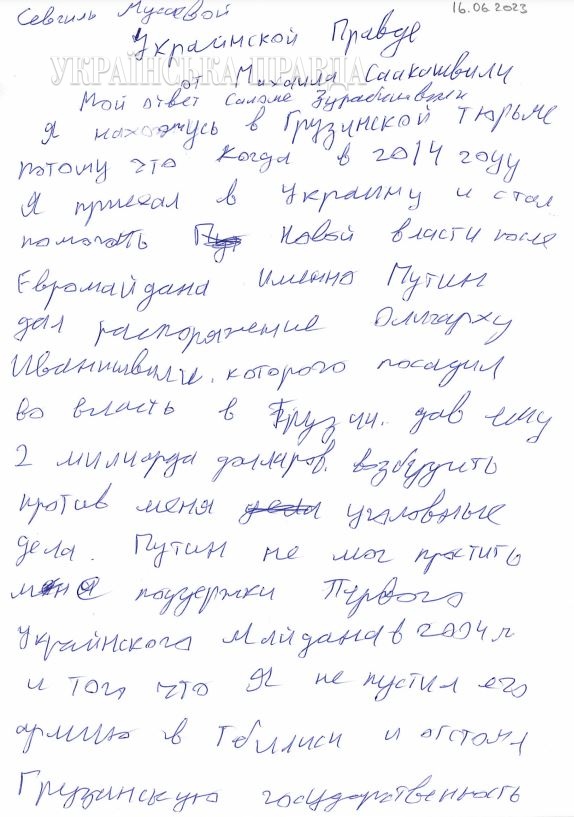 16.06.2023
Севгиль Мусаевой
Украинской Правде
УКРАЇНСЬКА ПРАВДА
от Михаила Саакашвили
Мой ответ Саломе Зурабишвили
Я нахожусь в Грузинской тюрьме
потому что когда в 2014 году
Я приехал в Украину и стал
помогать новой власти после
Евромайдана именно Путин
дал распоряжение Олигарху
Иванишвили, которого посадил
во власть в Грузии, дав ему
2 милиарда долларов, возбудить
против меня дела уголовные
дела. Путин не мог простить
меня поддержки Первого
Украинского Майдана в 2004 г
и того что Я не пустил его
армию в Тбилиси и отстоял
Грузинскую государственность